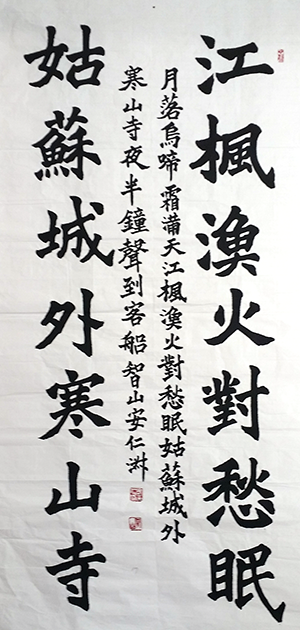 江楓漁火對愁眠
月落烏啼霜滿天江楓漁火對愁眠姑蘇城外
寒山寺夜半鐘聲到客船智山安仁淋
姑蘇城外寒山寺